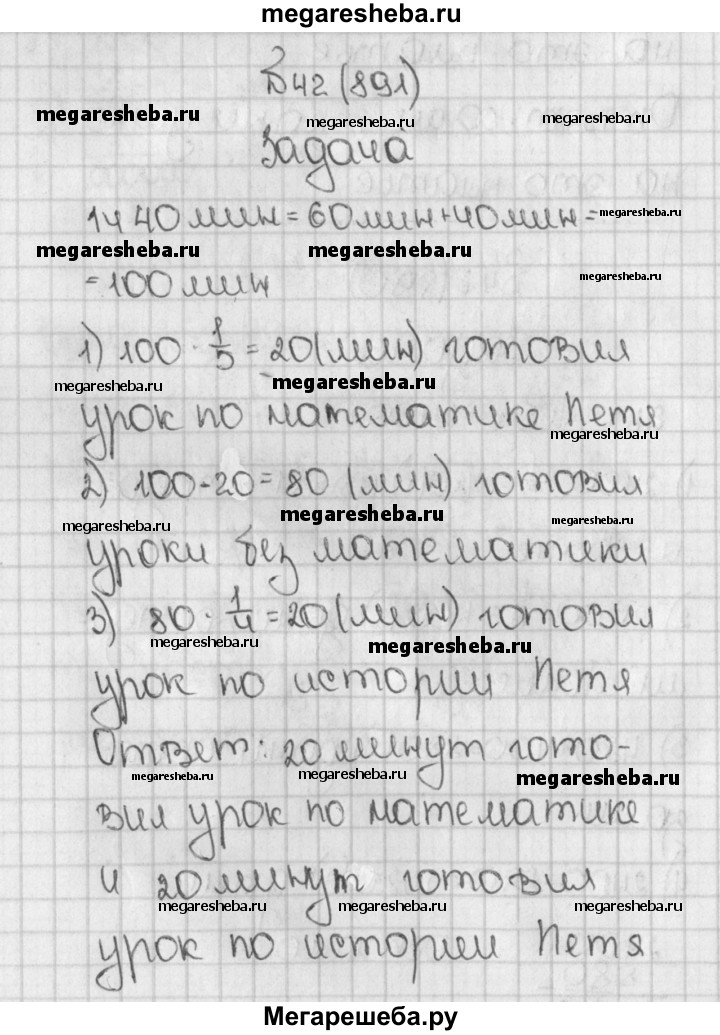 megaresheba.ru
№42 (891)
megaresheba.ru megaresheba.ru megaresheba.ru
Задача
1ч 40мин = 60мин+40мин =
megaresheba.ru
megaresheba.ru megaresheba.ru megaresheba.ru
= 100мин
1) 100 · 1/5 = 20(мин) готовил
megaresheba.ru megaresheba.ru
урок по математике Петя
megaresheba.ru
2) 100-20 = 80 (мин) готовил
megaresheba.ru megaresheba.ru megaresheba.ru
уроки без математики
3) 80 · 1/4 = 20(мин) готовил
megaresheba.ru megaresheba.ru
урок по истории Петя
Ответ: 20 минут гото-
megaresheba.ru megaresheba.ru megaresheba.ru
вил урок по математике
и 20 минут готовил
megaresheba.ru megaresheba.ru megaresheba.ru
урок по истории Петя
Мегарешеба.ру